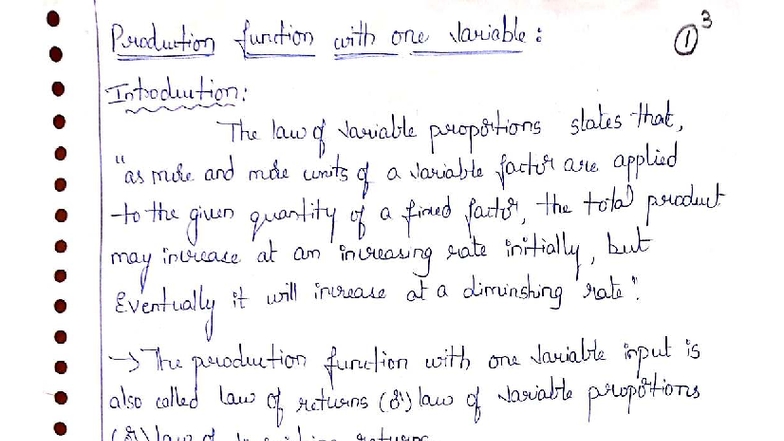 Production function with one Variable:
① 3
Introduction:
The law of Variable proportions states that,
"as more and more units of a variable factor are applied
to the given quantity of a fixed factor, the total product
may increase at an increasing rate initially, but
Eventually it will increase at a diminshing rate".
→ The production function with one Variable input is
also called law of returns (or) law of Variable propotions
(or) law of returns